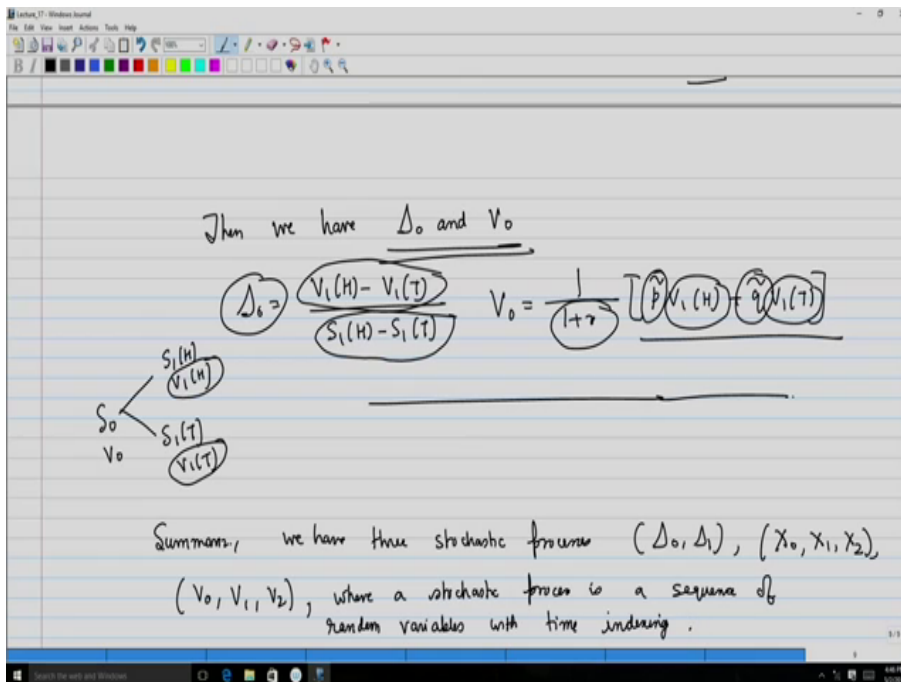 Lecture_17 - Windows Journal
File Edit View Insert Actions Tools Help
Then we have Δ₀ and V₀
Δ₀ = (V₁(H) - V₁(T)) / (S₁(H) - S₁(T)) V₀ = 1 / (1+r) [p̃ V₁(H) + q̃ V₁(T)]
S₁(H)
V₁(H)
S₀
V₀
S₁(T)
V₁(T)
Summary, we have three stochastic processes (Δ₀, Δ₁), (X₀, X₁, X₂),
(V₀, V₁, V₂), where a stochastic process is a sequence of
random variables with time indexing.
Search the web and Windows